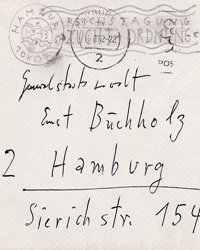 HAMBURG
REICHSTAGUNG
ZUCHT ORDNUNG
2
Generalstaatsanwalt
Ernst Buchholz
2 Hamburg
Sierichstr. 154